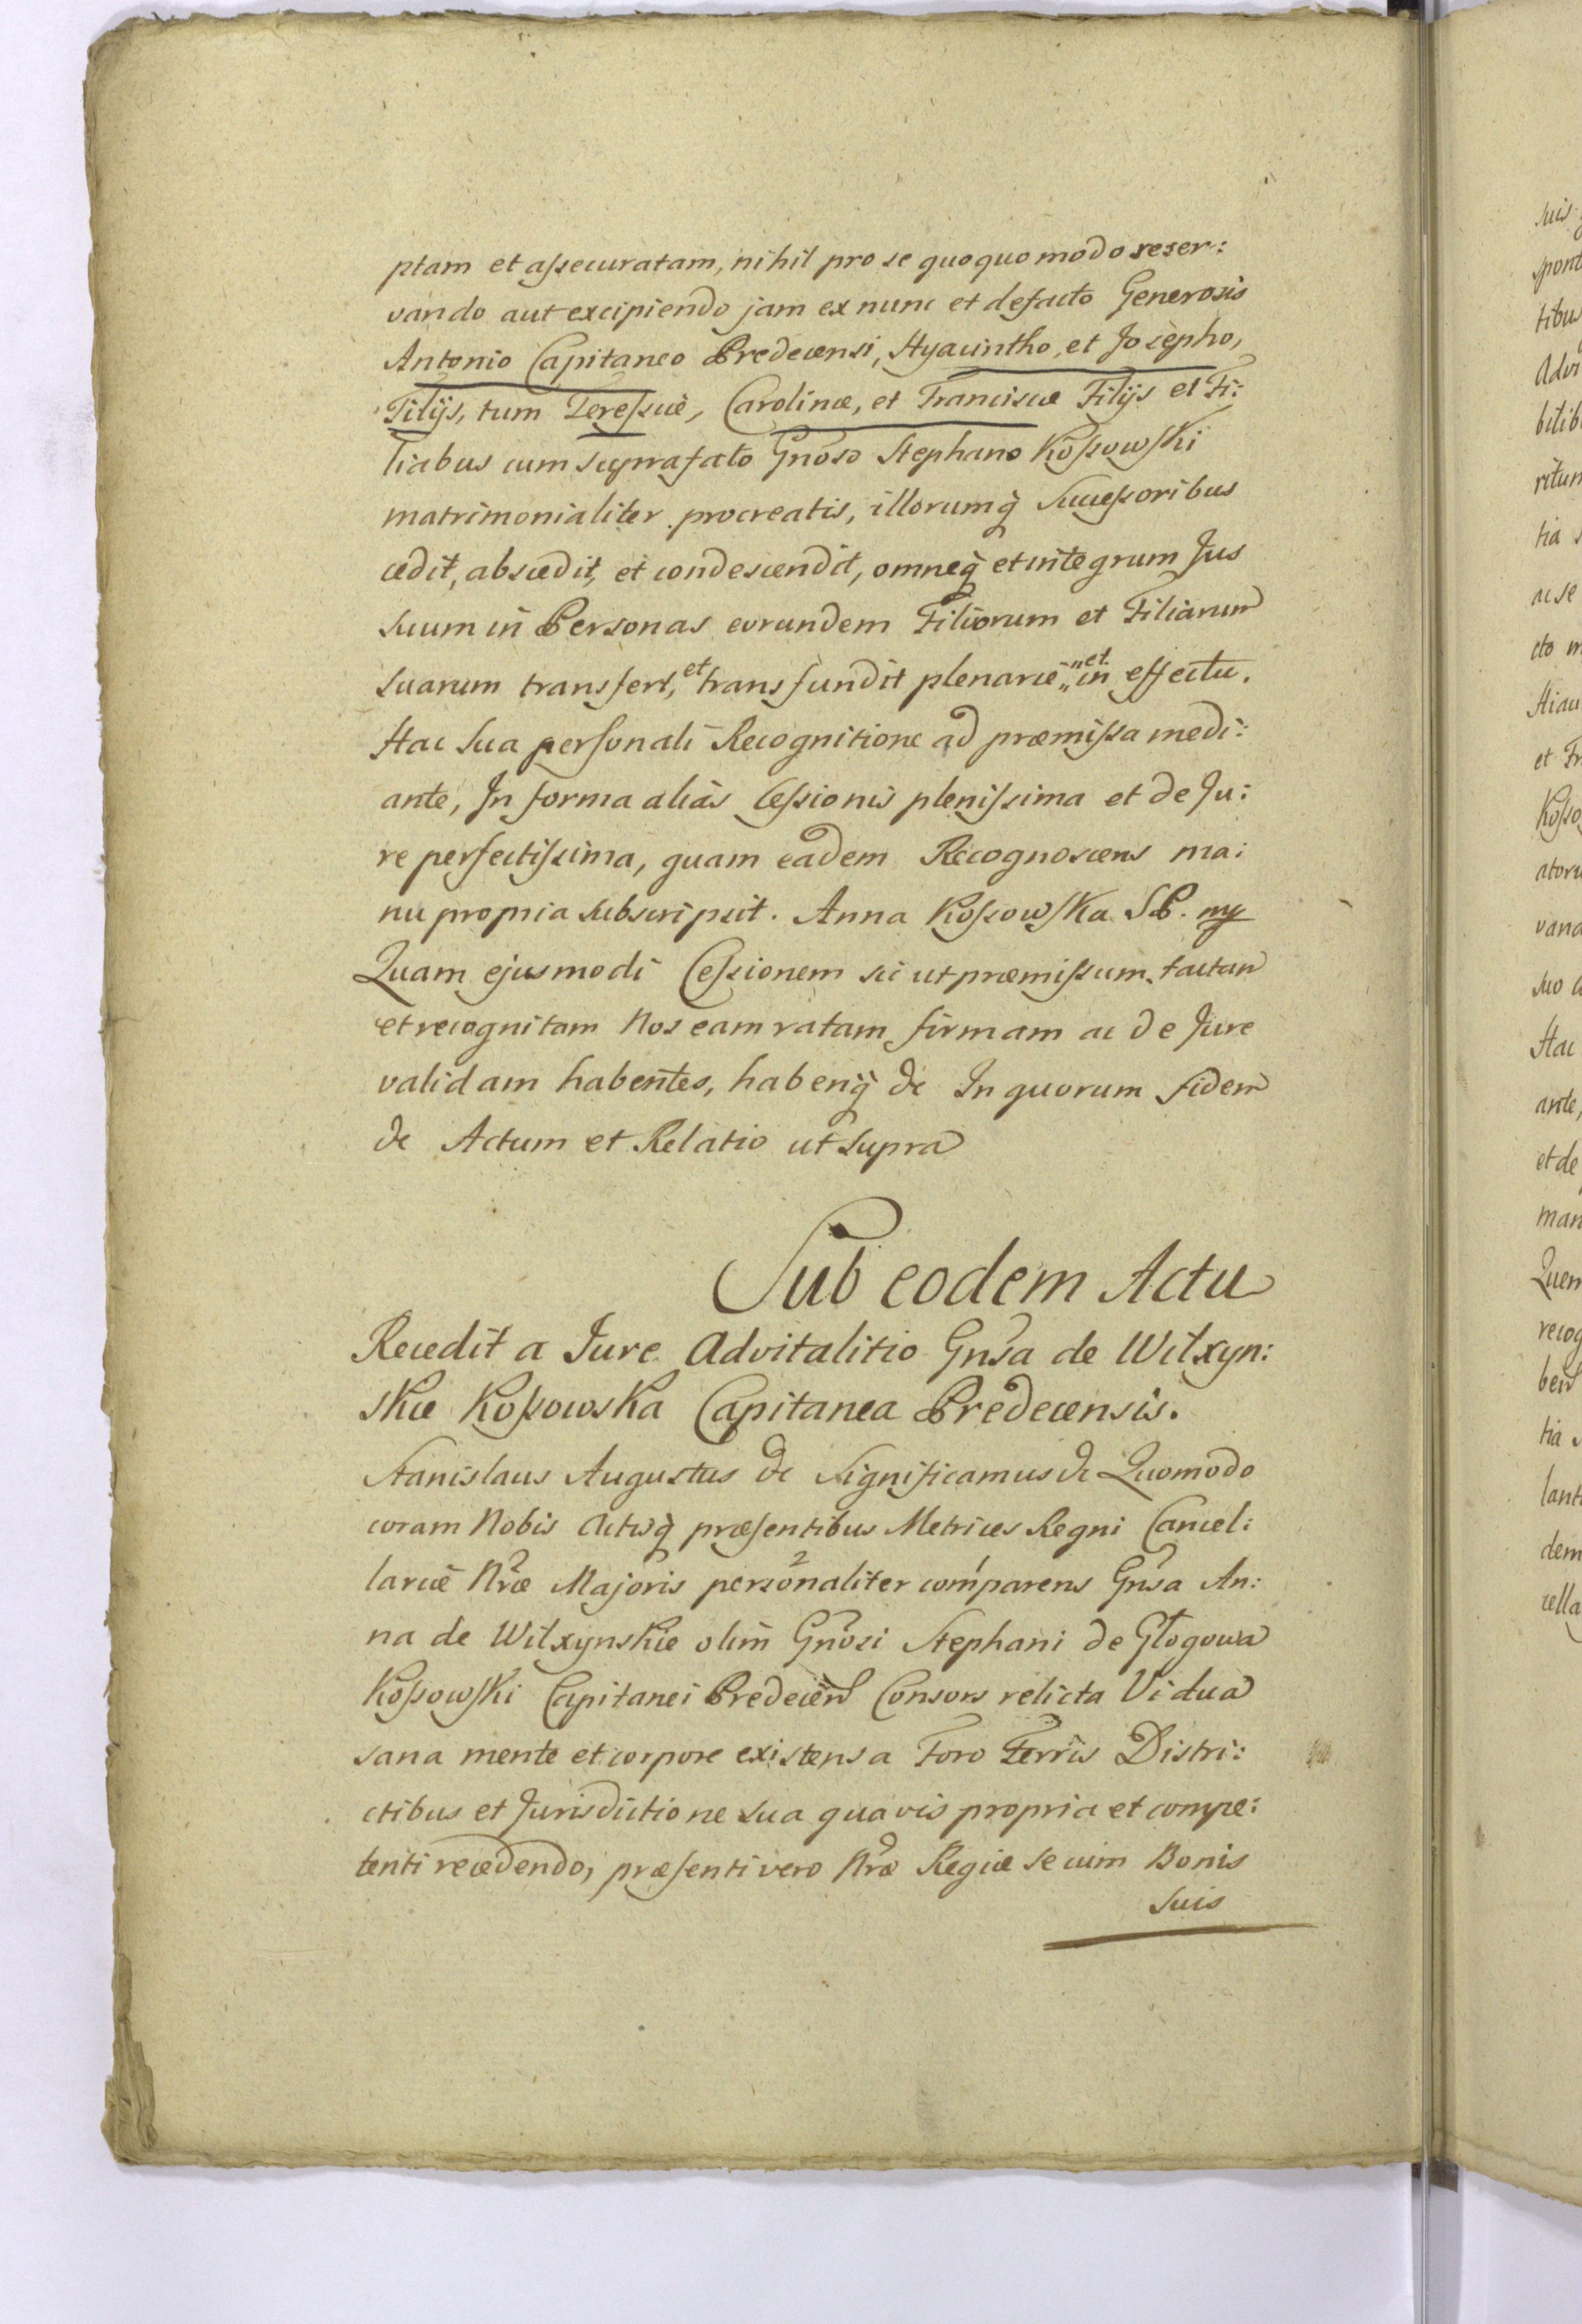 ptam et assecuratam, nihil pro se quoquo modo reser:
vando aut excipiendo jam ex nunc et defacto Generosis
Antonio Capitaneo Predecensi, Hyacintho, et Josepho,
Filijs, tum Teressæ, Carolinæ, et Franciscæ Filijs et Fi:
liabus cum suprafato Gnoso Stephano Kossowski
matrimonialiter procreatis, illorumq̀ Successoribus
cedit, abscedit, et condescendit, omneq̀ et integrum Jus
suum in Personas eorundem Filiorum et Filiarum
suarum transfert, et transfundit plenarie „et in effectu.
Hac sua personali Recognitione ad præmissa medi:
ante, In forma aliàs Cessionis plenissima et de Ju:
re perfectissima, quam eadem Recognoscens ma:
nu propria subscripsit. Anna Kossowska SP. mp
Quam ejusmodi Cessionem sic ut præmissum factam
et recognitam Nos eam ratam firmam ac de Jure
validam habentes, habenq̀ &c In quorum fidem
&c Actum et Relatio ut supra
Sub eodem Actu
Recedit a Jure Advitalitio Gnsa de Wilxyn:
skie Kossowska Capitanea Predecensis.
Stanislaus Augustus &c Significamus &c Quomodo
coram Nobis Actisq̀ præsentibus Metrices Regni Cancel:
lariæ Nræ Majoris personaliter comparens Gnsa An:
na de Wilxynskie olim Gnosi Stephani de Głogowa
Kossowski Capitanei Predecen Consors relicta Vidua
sana mente et corpore existens a Foro Terris Distri:
ctibus et Jurisdictione sua quavis propria et compe:
tenti recedendo, præsenti vero Nræ Regiæ se cum Bonis
suis